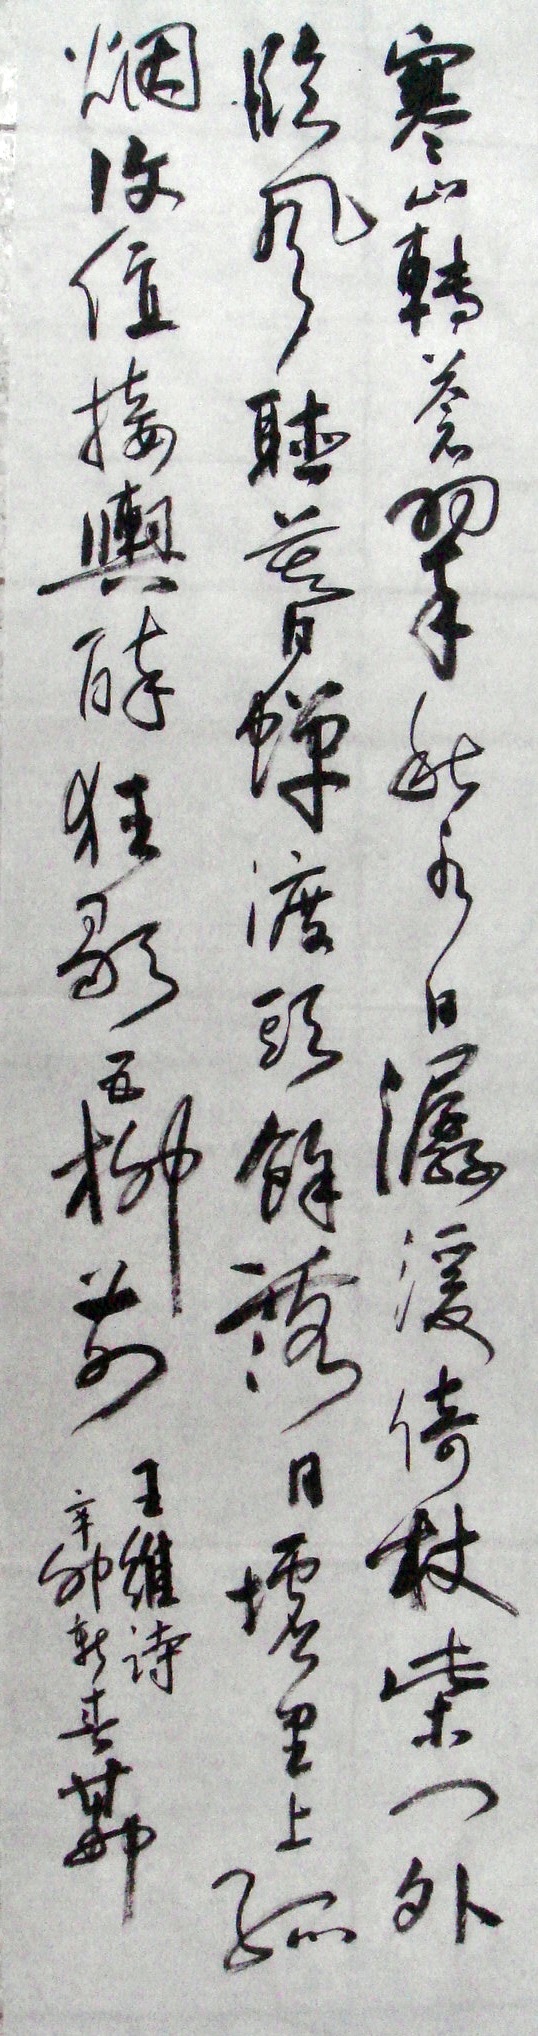 寒山轉蒼翠秋水日潺湲倚杖柴门外
臨风聴暮蟬渡頭餘落日墟里上孤
烟復值接輿醉狂歌五柳前
王維诗
辛卯新春